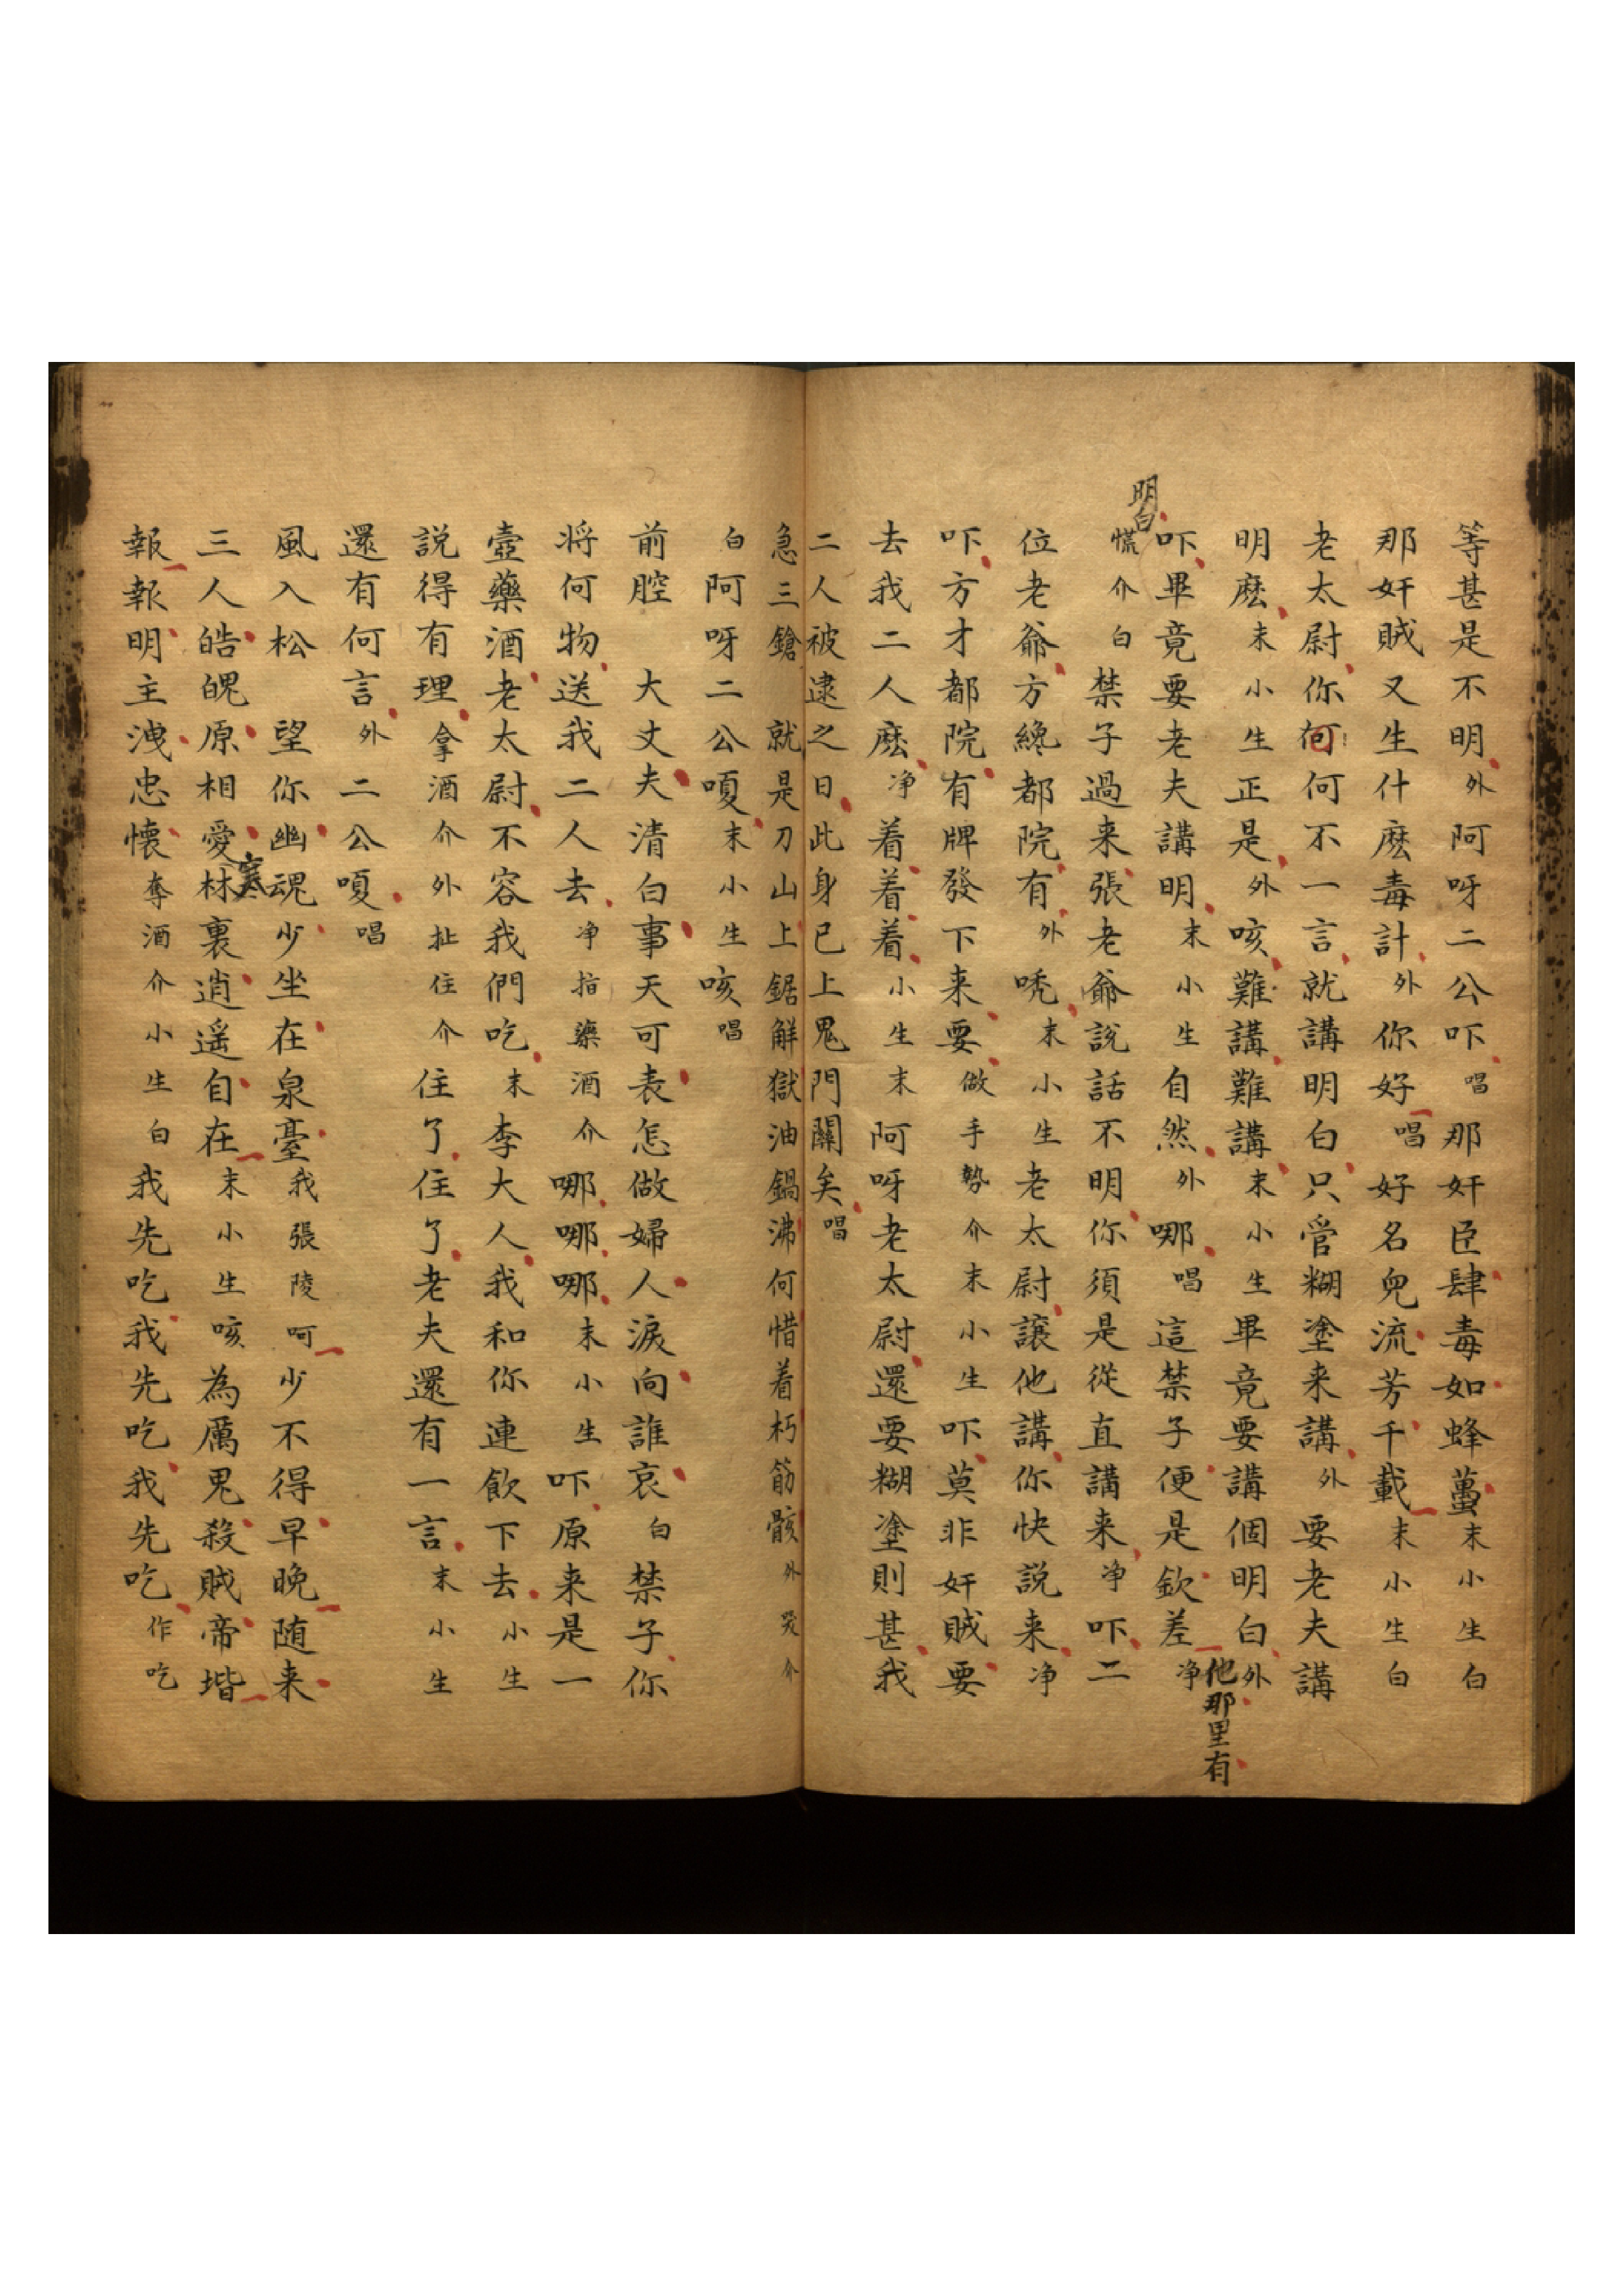 等甚是不明外阿呀二公吓唱那奸臣肆毒如蜂蠆末小生白
那奸賊又生什麽毒計外你好唱好名兒流芳千載末小生白
老太尉你何何不一言就講明白只管糊塗来講外要老夫講
明麽末小生正是外咳難講難講末小生畢竟要講個明白外
吓畢竟要老夫講明末小生自然外哪唱這禁子便是欽差净
他那里有
明白
慌介白禁子過来張老爺説話不明你須是從直講来净吓二
位老爺方纔都院有外唗末小生老太尉讓他講你快説来净
吓方才都院有牌發下来要做手勢介末小生吓莫非奸賊要
去我二人麽净着着着小生末阿呀老太尉還要糊塗則甚我
二人被逮之日此身已上鬼門關矣唱
急三鎗 就是刀山上鋸解獄油鍋沸何惜着朽筋骸外哭介
白阿呀二公嗄末小生咳唱
前腔 大丈夫清白事天可表怎做婦人淚向誰哀白禁子你
将何物送我二人去净指藥酒介哪哪哪末小生吓原来是一
壺藥酒老太尉不容我們吃末李大人我和你連飲下去小生
説得有理拿酒介外扯住介住了住了老夫還有一言末小生
還有何言外二公嗄唱
風入松 望你幽魂少坐在泉臺我張陵呵少不得早晚随来
三人皓魄原相愛材裏逍遥自在末小生咳為厲鬼殺賊帝堦
寒
報報明主洩忠懐奪酒介小生白我先吃我先吃我先吃作吃